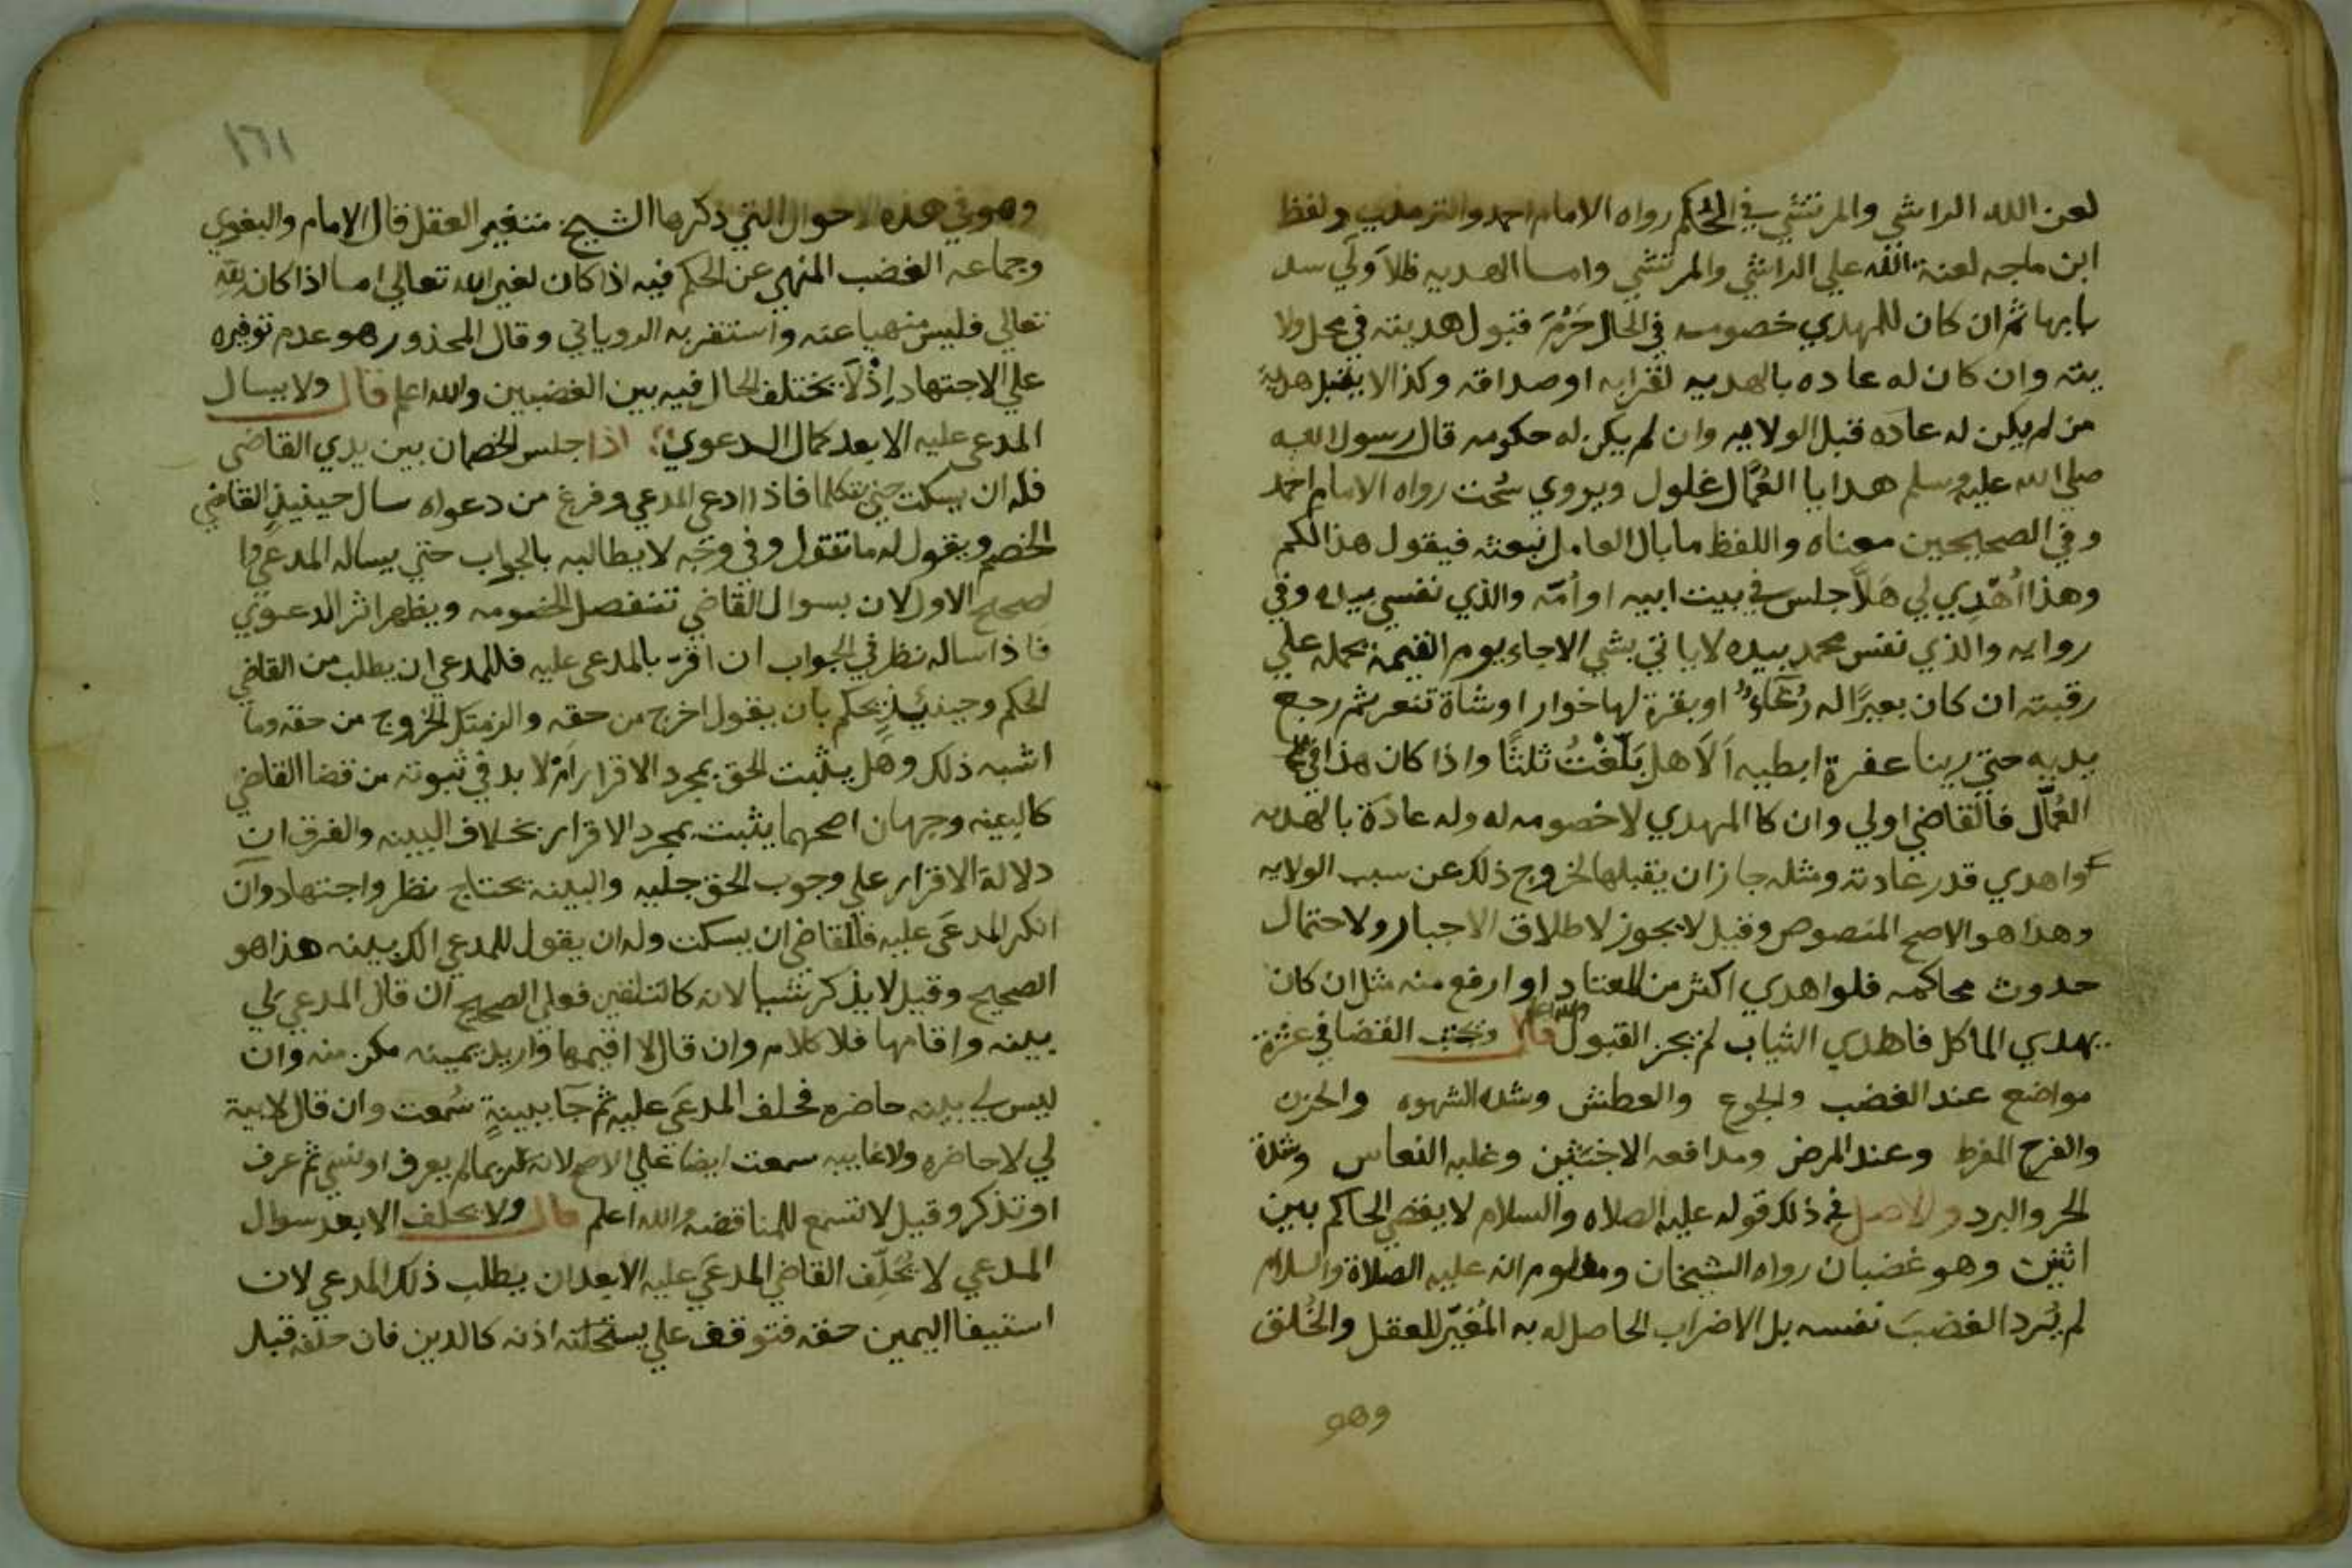 لعن الله الراشي والمرتشي في الحُكم رواه الامام احمد والترمذي ولفظ
ابن ماجه لعنة الله علي الراشي والمرتشي واما الهديه فالاَولَي سد
بابها ثم ان كان للمهدي خصومه في الحال حَرُمَ قبول هديته في محل ولا
يته وان كان له عاده بالهديه لقرابه او صداقه وكذا لا يقبل هدية
من لم يكن له عاده قبل الولايه وان لم يكن له حكومه قال رسول الله
صلي الله عليه وسلم هدايا العُمّال غلول ويروي سُحت رواه الامام احمد
وفي الصحيحين معناه واللفظ ما بال العامل نبعثه فيقول هذا لكم
وهذا اُهْدِي لي هَلَّا جلس في بيت ابيه او اُمّه والذي نفسي بيده وفي
روايه والذي نفس محمد بيده لا ياتي بشي الا جاء يوم القيمة يحمله علي
رقبته ان كان بعيرًا له رُغَاءٌ او بقرة لها خوار او شاة تنعر ثم رجع
يديه حتي رينا عفرة ابطيه اَلاَ هل بَلّغْتُ ثلثًا واذا كان هذا في
العُمّال فالقاضي اولي وان كا المهدي لا خصومه له وله عادة بالهديه
واهدي قدر عادته ومثله جاز ان يقبلها لخروج ذلك عن سبب الولايه
وهذا هو الاصح المنصوص وقيل لا يجوز لاطلاق الاخبار ولاحتمال
حدوث محاكمه فلو اهدي اكثر من المعتاد او ارفع منه مثل ان كان
يهدي الماكل فاهدي الثياب لم يجز القبول والله اعلم قال ويجتنب القضا في عشرة
مواضع عند الغضب والجوع والعطش وشده الشهوه والحزن
والفرح المفرط وعند المرض ومدافعه الاخبثين وغلبه النعاس وشدة
الحر والبرد والاصل في ذلك قوله عليه الصلاه والسلام لا يقضي الحاكم بين
اثنين وهو غضبان رواه الشيخان ومعلوم انه عليه الصلاة والسلام
لم يُرد الغضبَ نفسه بل الاضراب الحاصل له به المُغيّر للعقل والخُلق
وهو
١٦١
وهو في هذه الاحوال التي ذكرها الشيخ متغير العقل قال الامام والبغوي
وجماعه الغضب المنهي عن الحكم فيه اذا كان لغير الله تعالي اما اذا كان لله
تعالي فليس منهيا عنه واستقر به الروياني وقال المحذور هو عدم توفيره
علي الاجتهاد اِذْ لَا يختلف الحال فيه بين الغضبين والله اعلم قال ولا يسال
المدعي عليه الا بعد كمال الدعوي اذا جلس الخصمان بين يدي القاضي
فله ان يسكت حتي يتكلما فاذا ادعي المدعي وفرغ من دعواه سال حينيذٍ القاضي
الخصم ويقول له ما تقول وفي وجه لا يطالبه بالجواب حتي يساله المدعي وا
لصحيح الاول لان بسوال القاضي تنفصل الخصومه ويظهر اثر الدعوي
فاذا ساله نظر في الجواب ان اقرّ بالمدعي عليه فللمدعي ان يطلب من القاضي
الحكم وحينئيذٍ يحكم بان يقول اخرج من حقه والزمتك الخروج من حقه وما
اشبه ذلك وهل يثبت الحق بمجرد الاقرار اَم لا بد في ثبوته من قضا القاضي
كالبينه وجهان اصحهما يثبت بمجرد الاقرار بخلاف البينه والفرق ان
دلالة الاقرار علي وجوب الحق جليه والبينة يحتاج نظر واجتهاد وان
انكر المدعَي عليه فللقاضي ان يسكت وله ان يقول للمدعي الك بينه هذا هو
الصحيح وقيل لا يذكر شيا لانه كالتلقين فعلي الصحيح ان قال المدعي لي
بينه واقامها فلا كلام وان قال لا اقيمها واريد يمينه مكن منه وان
ليس لي بينه حاضره فحلف المدعَي عليه ثم جَا ببينةٍ سُمعت وان قال لا بينة
لي لا حاضره ولا غايبه سمعت ايضا علي الاصح لانه ربما لم يعرف او نسي ثم عرف
او تذكر وقيل لا تسمع للمناقضه والله اعلم قال ولا يحلف الا بعد سوال
المدعي لا يُحَلِّف القاضي المدعَي عليه الا بعد ان يطلب ذلك المدعي لان
استيفا اليمين حقه فتوقف علي اذنه كالدين فان حلفه قبل